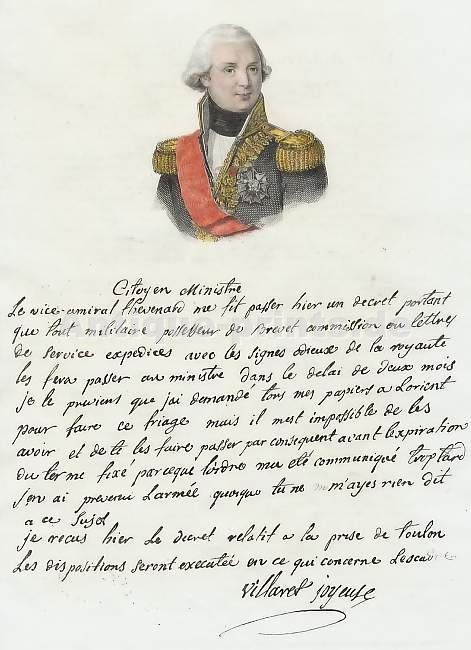 Citoyen Ministre
Le vice-amiral thevenard me fit passer hier un decret portant
que tout militaire possesseur de Brevet commission ou lettres
de service expediées avec les signes odieux de la royauté
les fera passer au ministre dans le delai de deux mois
je te previens que jai demandé tous mes papiers a Lorient
pour faire ce triage mais il mest impossible de les
avoir et de te les faire passer par consequent avant l'expiration
du terme fixé parceque lordre ma eté communiqué trop tard
j'en ai prevenu L'armée quoique tu ne m'ayes rien dit
a ce Sujet
je recus hier Le decret relatif a la prise de toulon
Les dispositions seront executée en ce qui concerne Lescadre
Villaret joyeuse